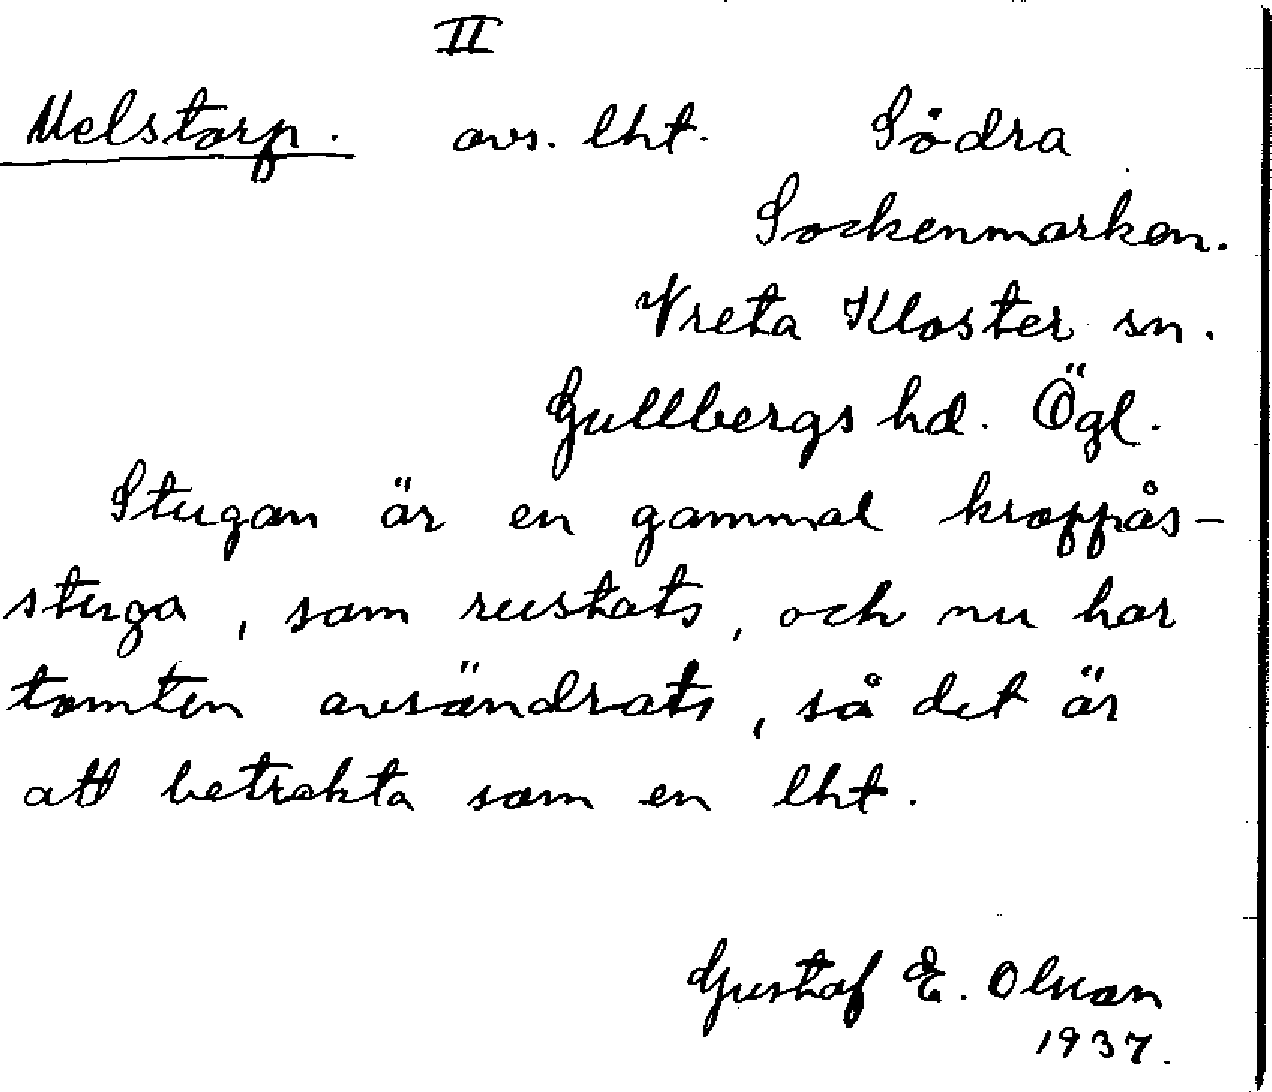 II
Melstorp. avs. lht. Södra
Sockenmarken.
Vreta Kloster sn.
Gullbergs hd. Ögl.
Stugan är en gammal kroppås-
stuga, som rustats, och nu har
tomten avsöndrats, så det är
att betrakta som en lht.
Gustaf E. Olsson
1937.